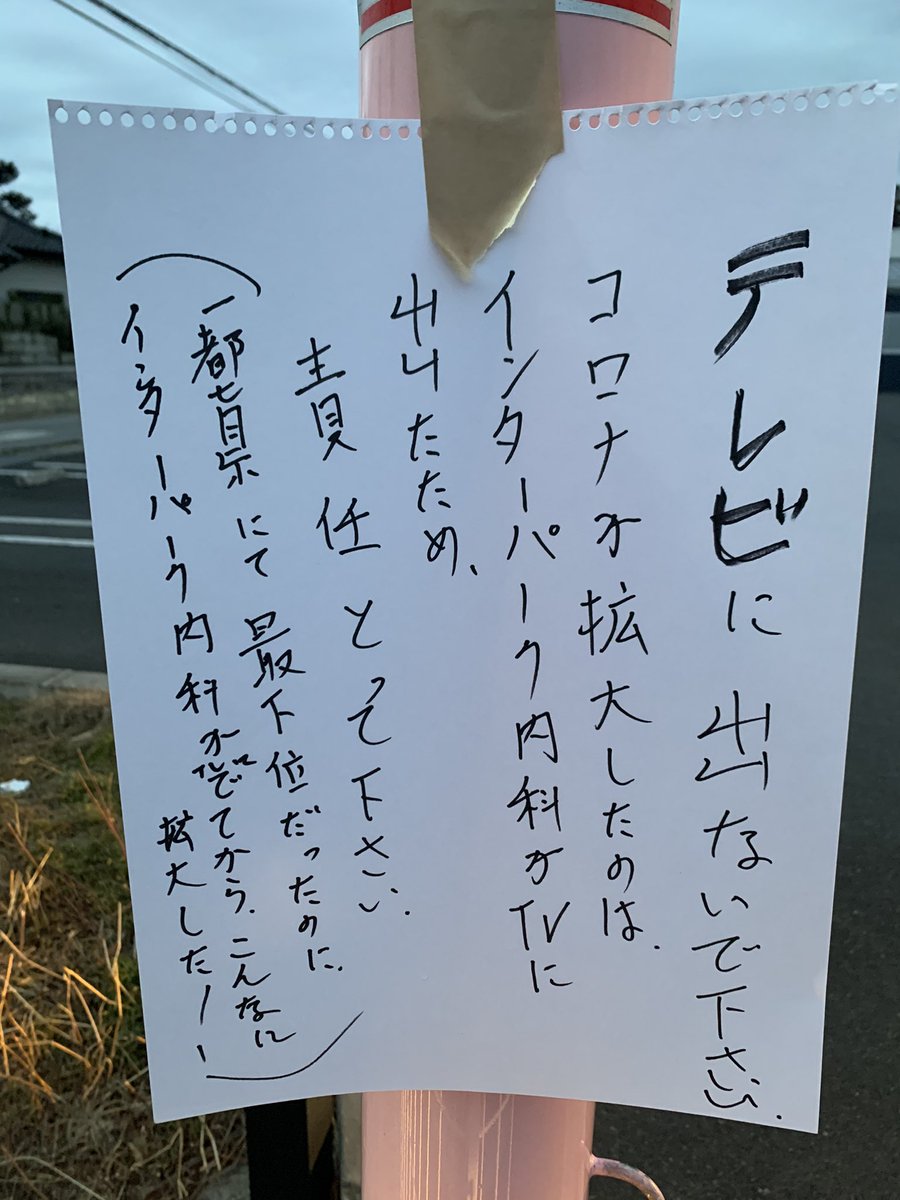 テレビに出ないで下さい.
コロナが拡大したのは、
インターパーク内科がTVに
出たため、
責任とって下さい.
(一都七県にて最下位だったのに、
インターパーク内科がTVにでてから、こんなに
拡大した!!)